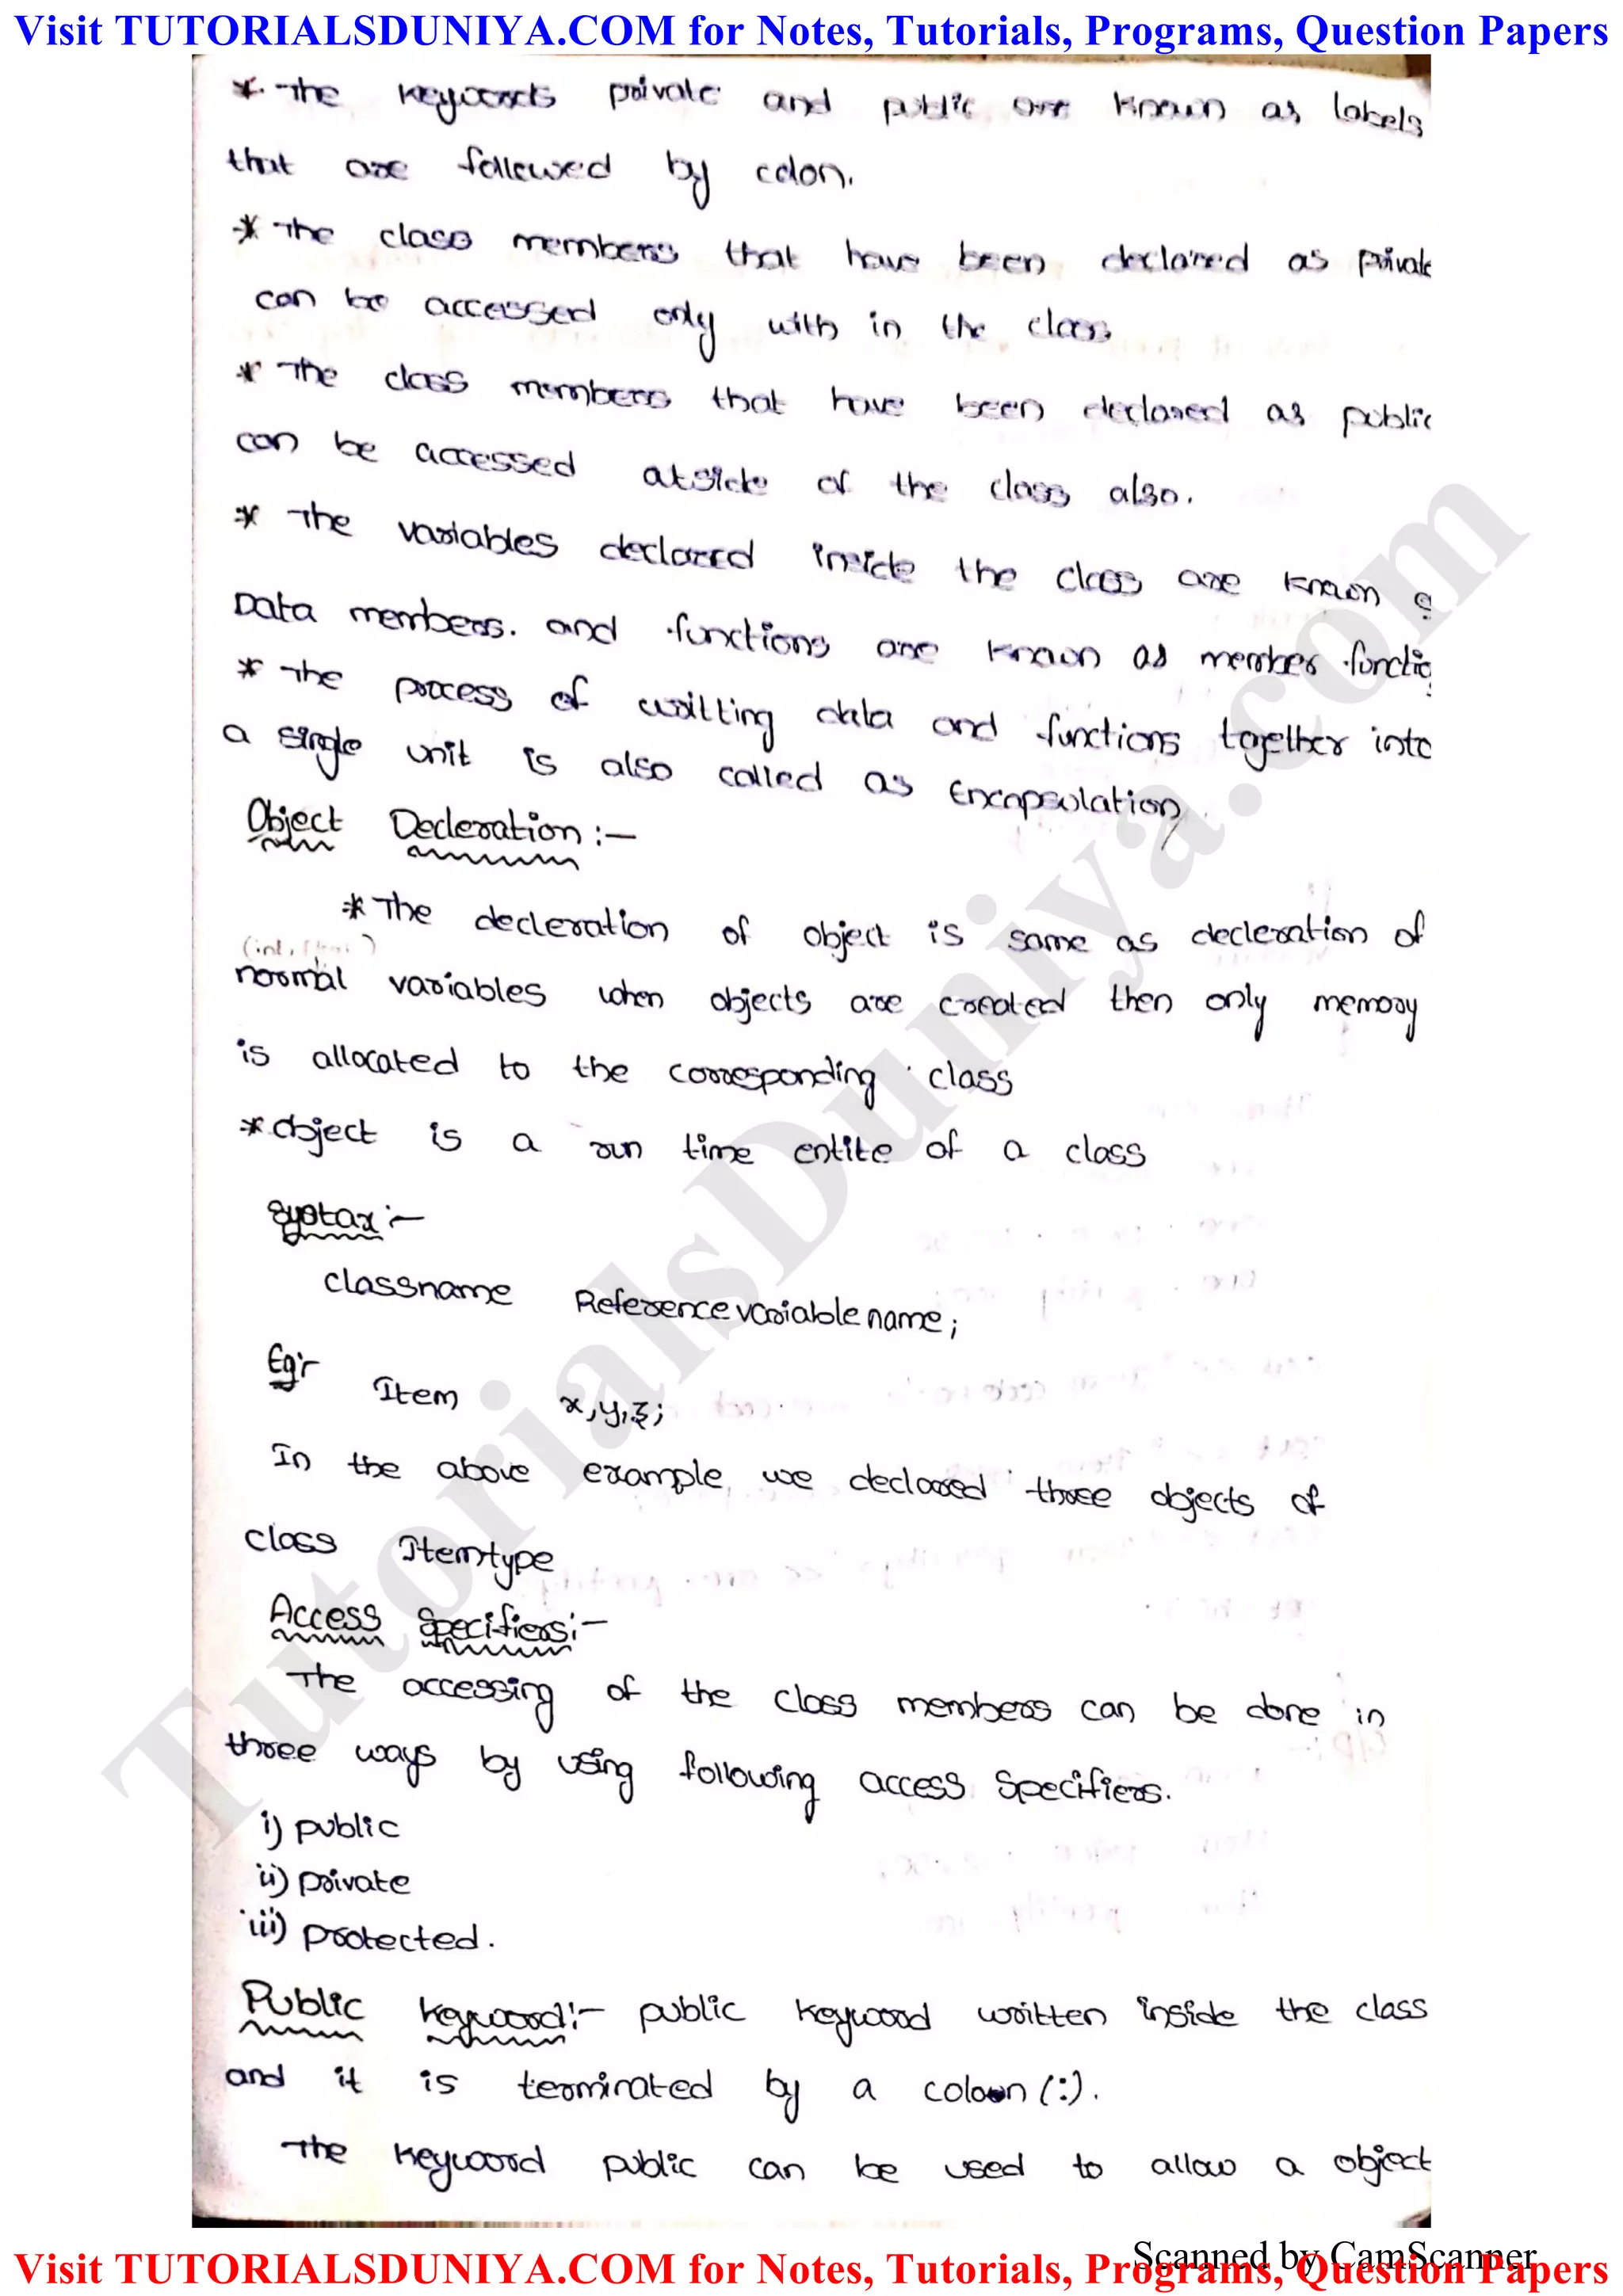 Visit TUTORIALSDUNIYA.COM for Notes, Tutorials, Programs, Question Papers
* The keywords private and public are known as labels
that are followed by colon.
* The class members that have been declared as private
can be accessed only with in the class
* The class members that have been declared as public
can be accessed atside of the class also.
* The variables declared inside the class are known
Data members. and functions are known as member functio
* The process of writting data and functions together into
a single unit is also called as Encapsulation
Object Decleration :-
* The decleration of object is same as decleration of
(int,
normal variables when objects are created then only memory
is allocated to the corresponding class
* object is a run time entite of a class
Syntax :-
classname Referencevariablename;
Eg:-
Item x,y,z;
In the above example we declared three objects of
class Itemtype
Access Specifiers:-
The accessing of the class members can be done in
three ways by using following access specifiers.
i) public
ii) private
iii) protected.
Public keyword:- public keyword written inside the class
and it is terminated by a coloun (:).
The keyword public can be used to allow a object
TutorialsDuniya.com
Scanned by CamScanner
Visit TUTORIALSDUNIYA.COM for Notes, Tutorials, Programs, Question Papers